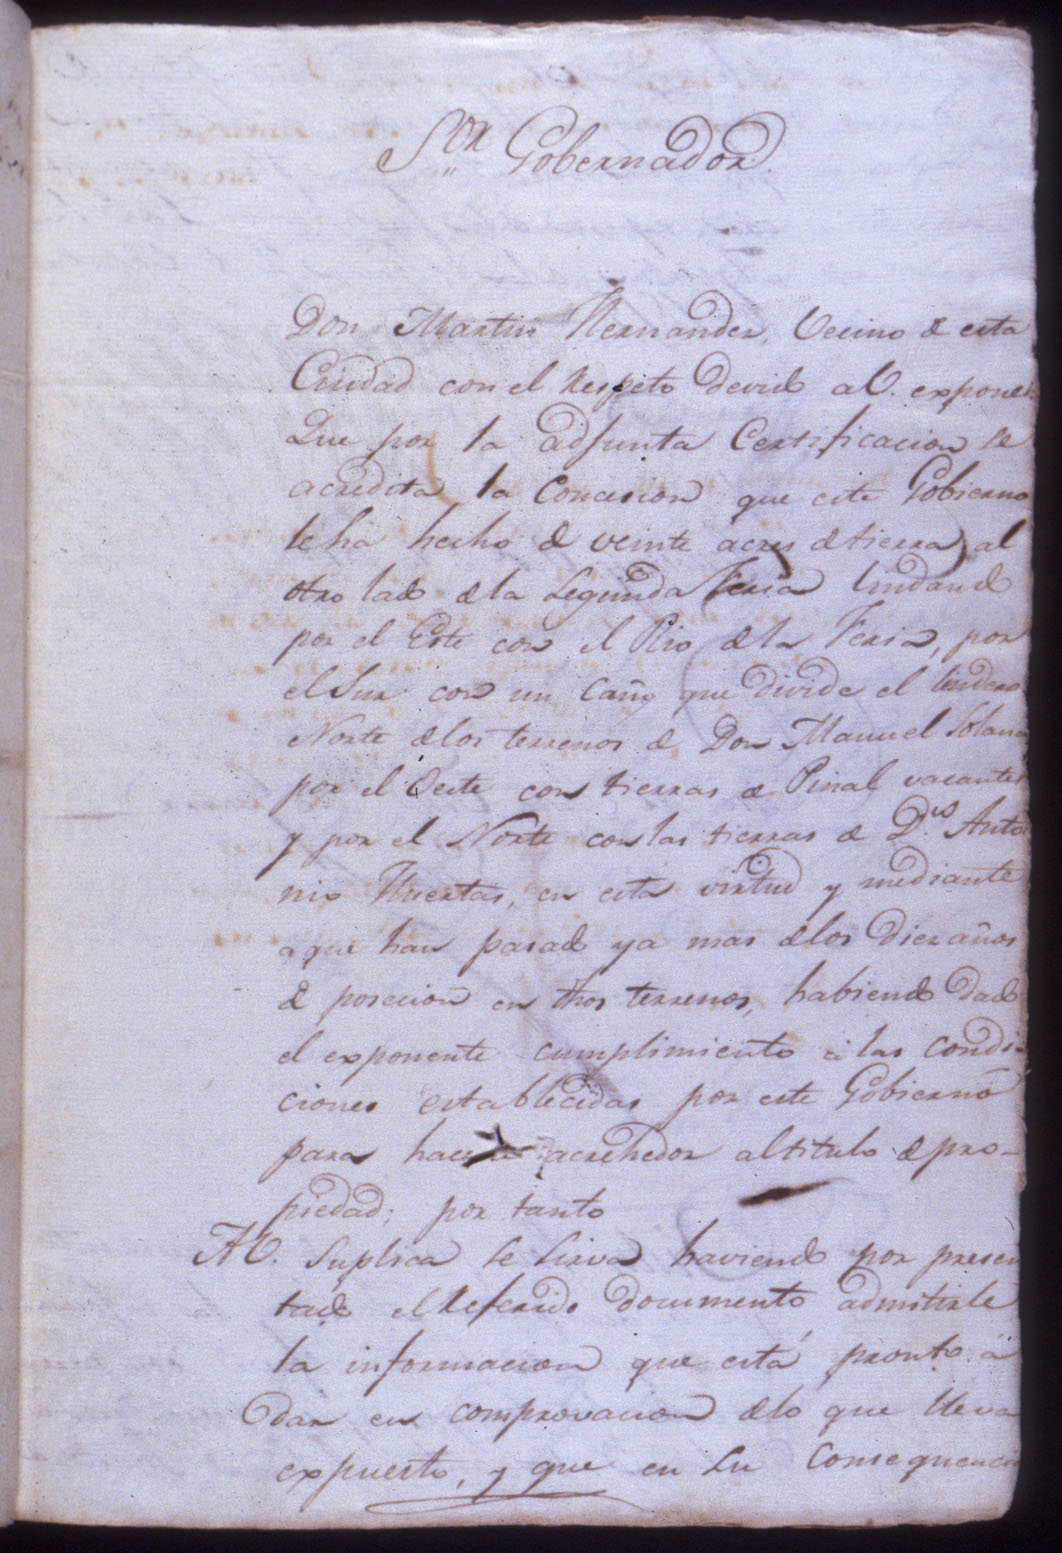 Sor. Gobernador.
Don Martin Hernandez, Vecino de esta
Ciudad con el Respeto devido a V. expone:
Que por la adjunta Certificacion se
acredita la Concesion que este Gobierno
le ha hecho de veinte acres de tierra al
otro lado de la Segunda Feria lindando
por el Este con el Rio de la Feria, por
el Sur con un Caño que divide el lindero
Norte de los terrenos de Don Manuel Solana
por el Oeste con tierras de Pinal vacantes
y por el Norte con las tierras de D.ⁿ Anto
nio Huertas, en esta virtud y mediante
a que han pasado ya mas de los diez años
de posecion en dhos terrenos, habiendo dado
el exponente cumplimiento á las condi-
ciones establecidas por este Gobierno
para hacerse acrehedor al titulo de pro-
piedad; por tanto
A V. Suplica se sirva haviendo por presen
tado el Referido documento admitirle
la informacion que está pronto á
dar en comprovacion de lo que lleva
expuesto, y que en su Consequencia